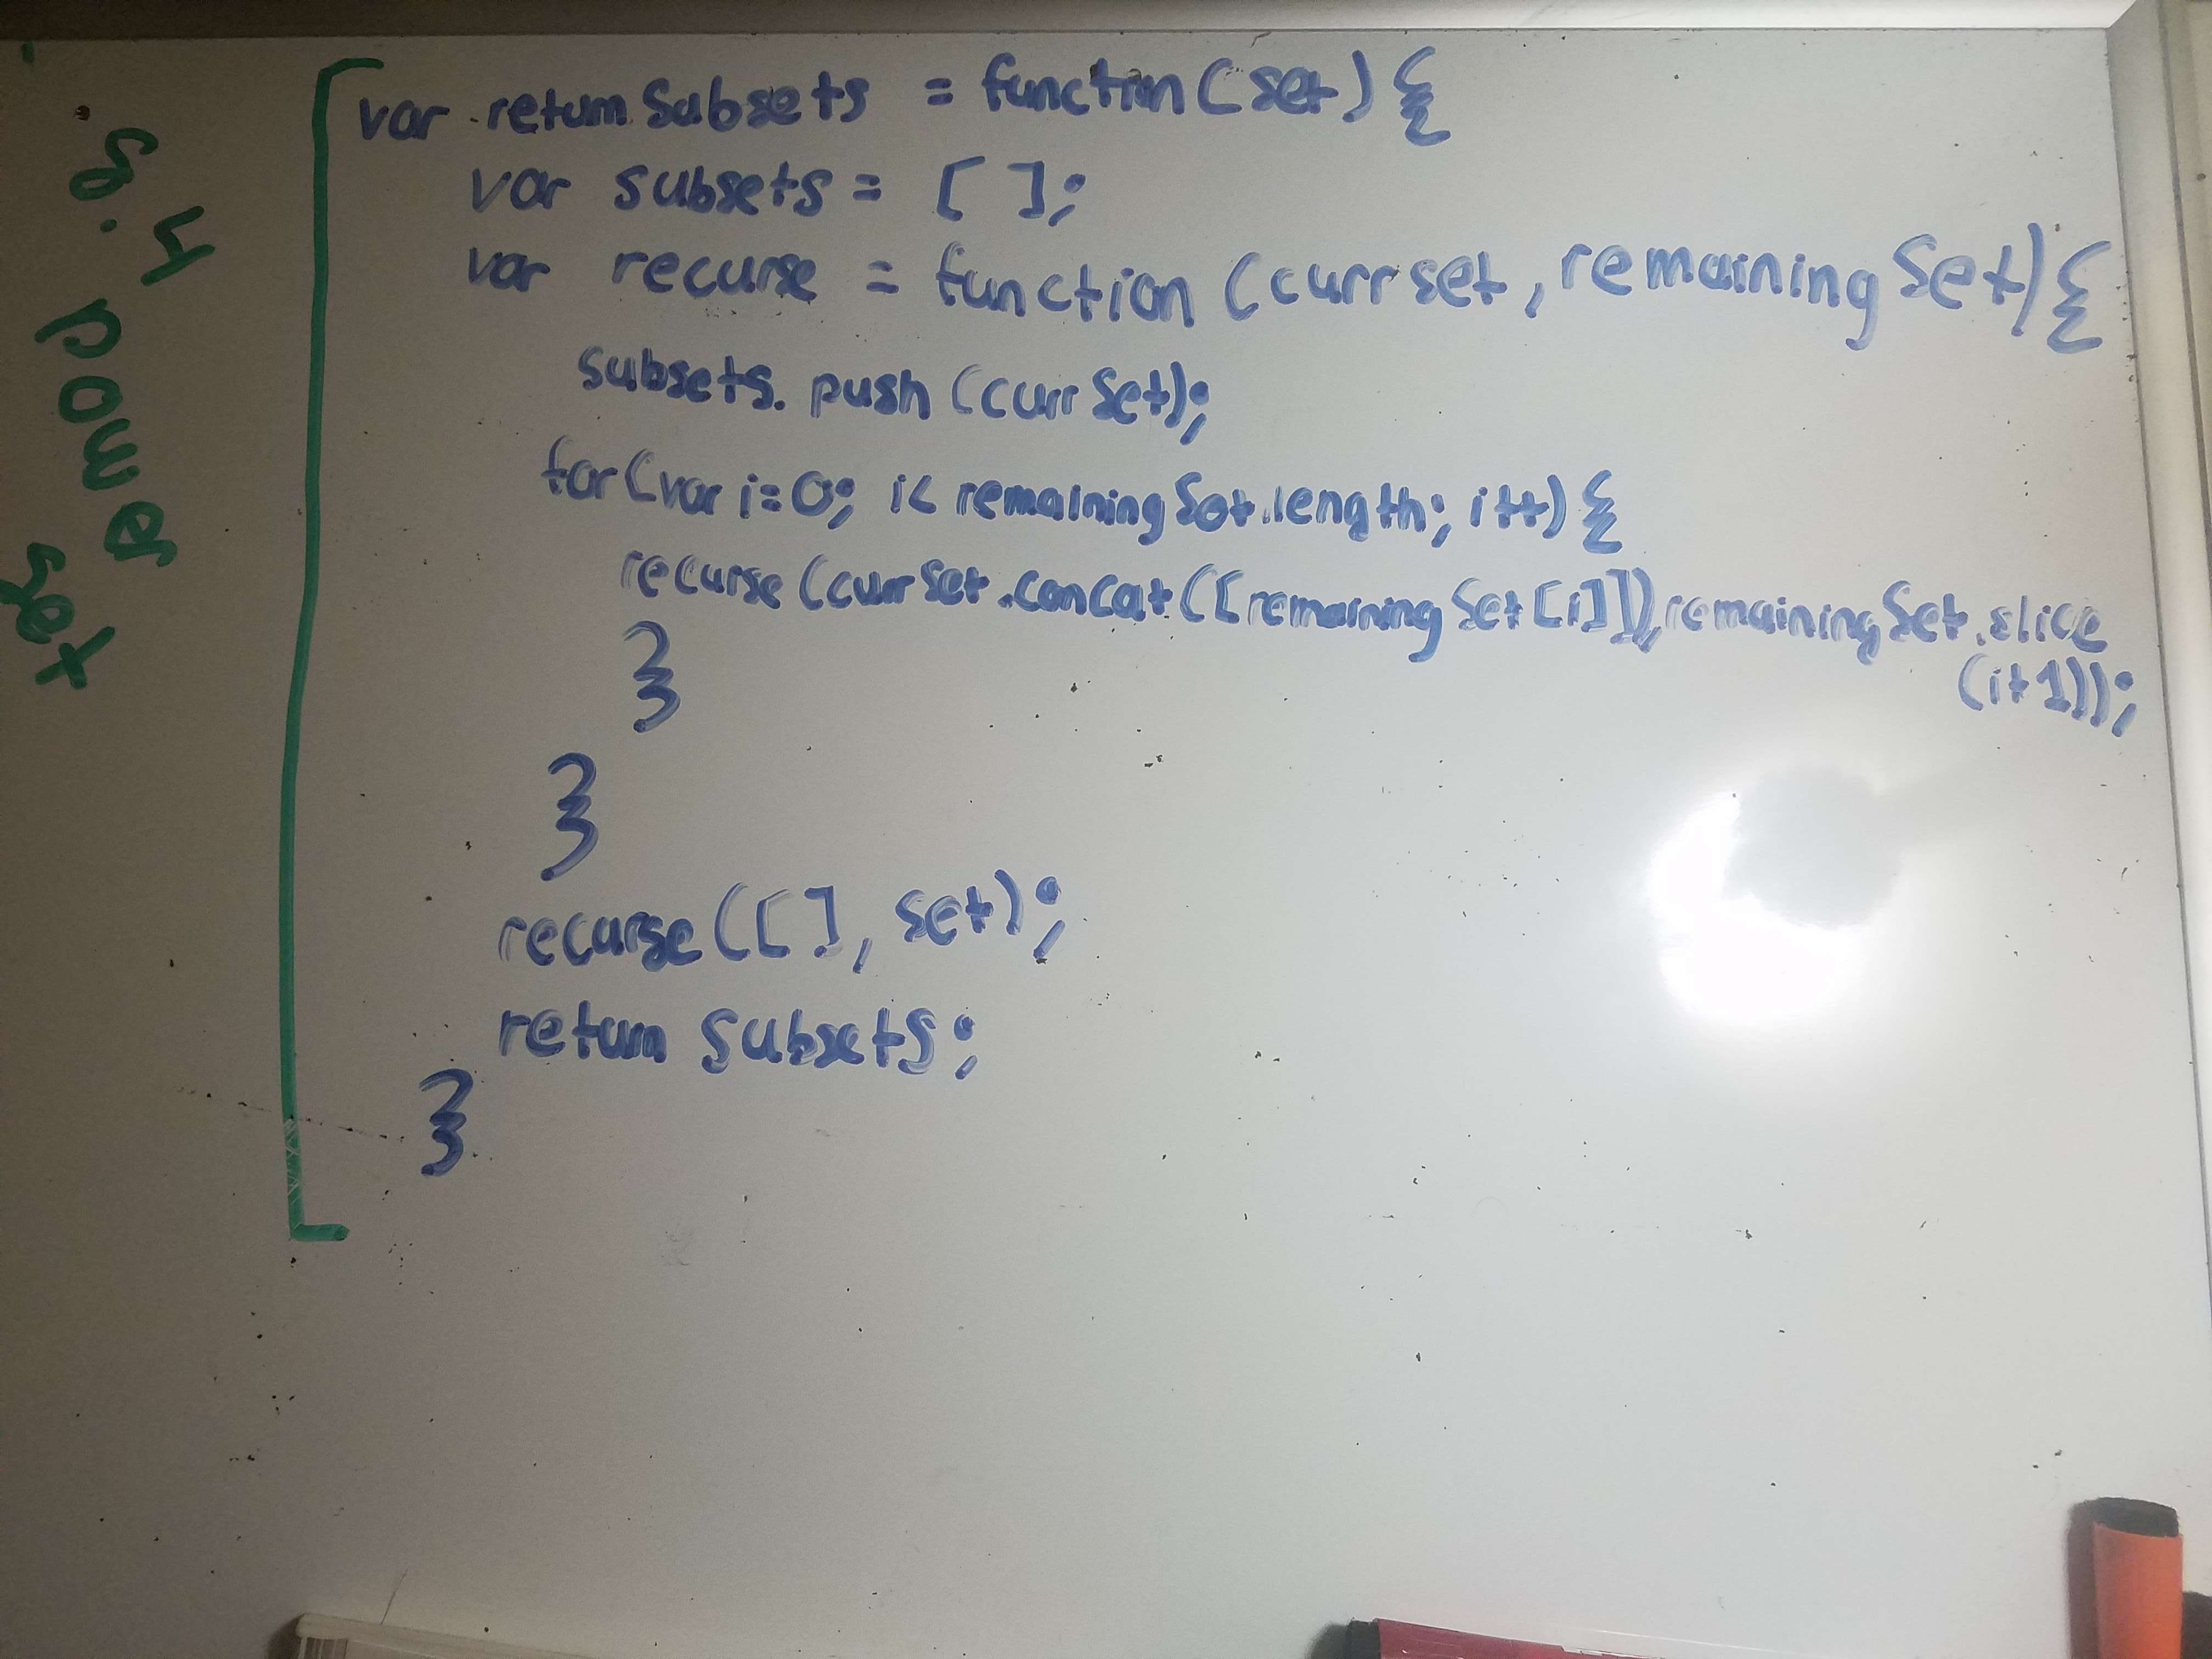 8.4 power set
var returnSubsets = function(set){
var subsets = [ ];
var recurse = function (currset, remainingSet){
subsets.push(currSet);
for(var i=0; i< remainingSet.length; i++){
recurse(currSet.concat([remainingSet[i]]),remainingSet.slice
(i+1));
}
}
recurse([], set);
return subsets;
}